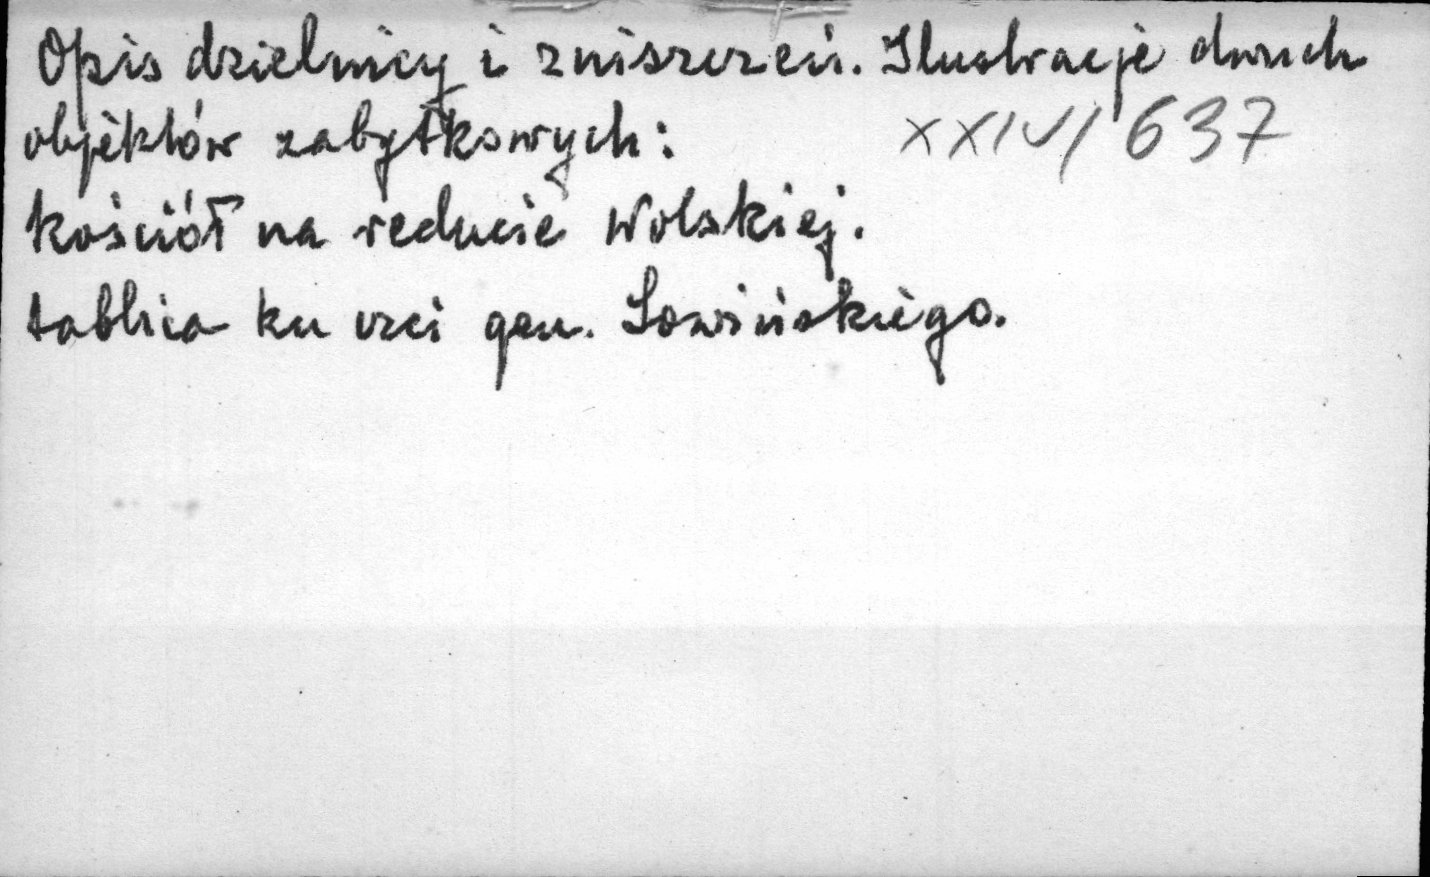 Opis dzielnicy i zniszczeń. Ilustracje dwuch
objektów zabytkowych: XXIV/637
kościół na reducie Wolskiej.
tablica ku czci gen. Sowińskiego.